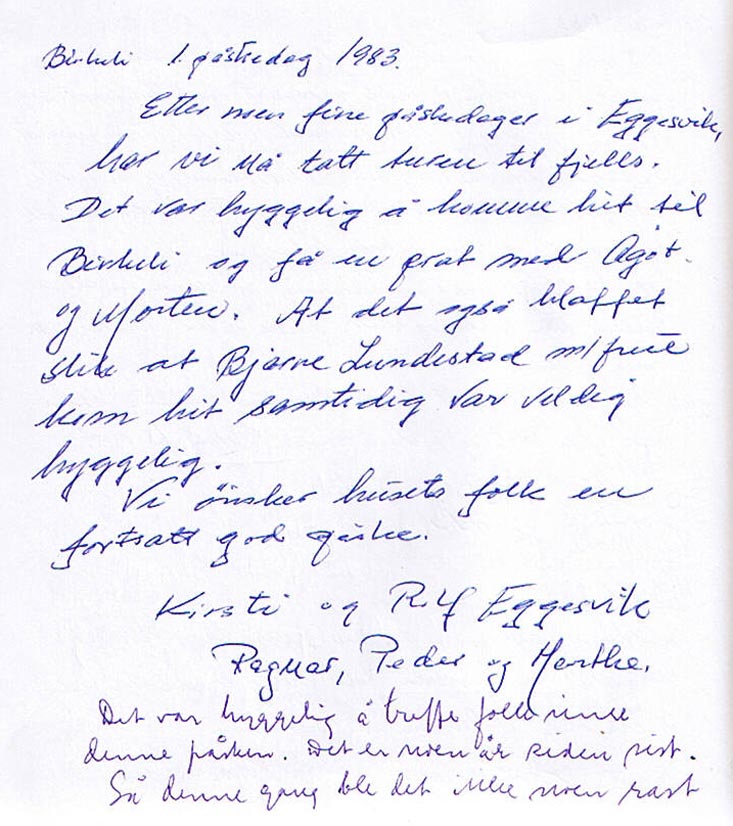 Birkeli 1. påskedag 1983.
Etter noen fine påskedager i Eggesvik,
har vi nå tatt turen til fjells.
Det var hyggelig å komme hit til
Birkeli og få en prat med Ågot
og Morten. At det også klaffet
slik at Bjarne Lundestad m/frue
kom hit samtidig var veldig
hyggelig.
Vi ønsker husets folk en
fortsatt god påske.
Kirsti og Rolf Eggesvik
Ragnar, Peder og Marthe.
Det var hyggelig å treffe folk
denne påsken. Det er noen år siden sist.
Så denne gang ble det ikke noen rast